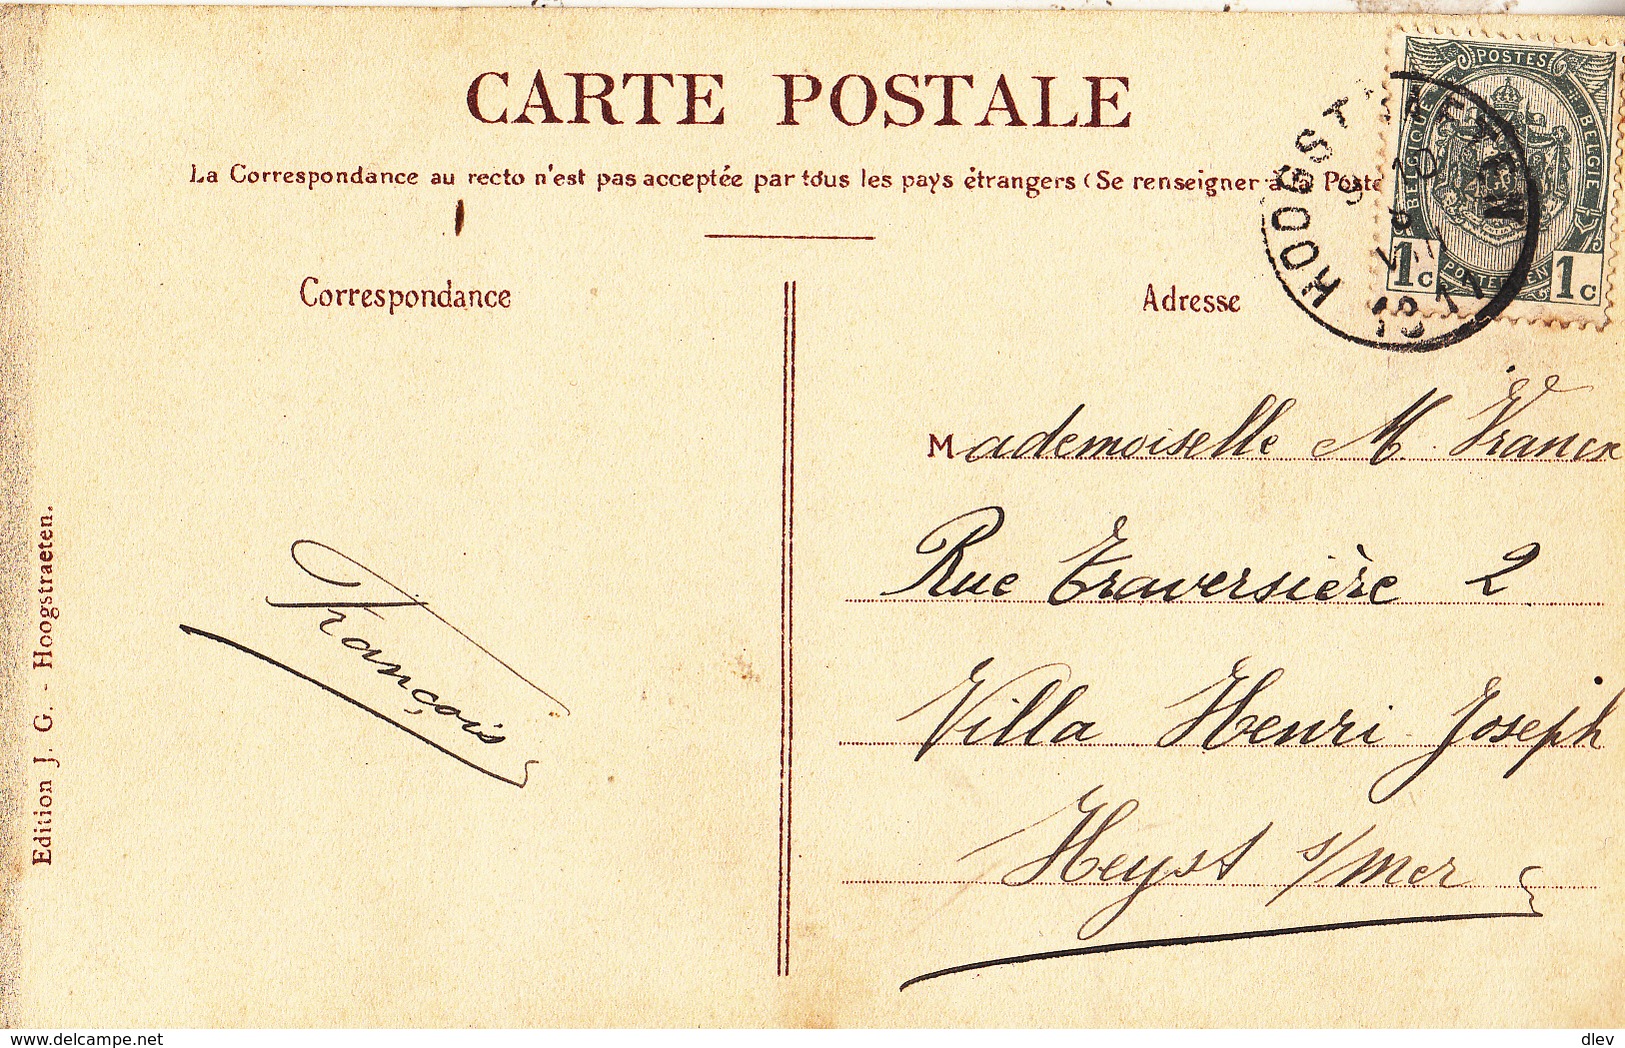 CARTE POSTALE
La Correspondance au recto n'est pas acceptée par tous les pays étrangers (Se renseigner à la Poste
Correspondance
Adresse
POSTES
BELGIQUE
BELGIË
1c
POSTERIJEN
1c
HOOGSTRAETEN
Mademoiselle M. Vrancx
Rue Traversière 2
Villa Henri Joseph
Heyst s/mer
François
Edition J. G. - Hoogstraeten.
delcampe.net
dlev